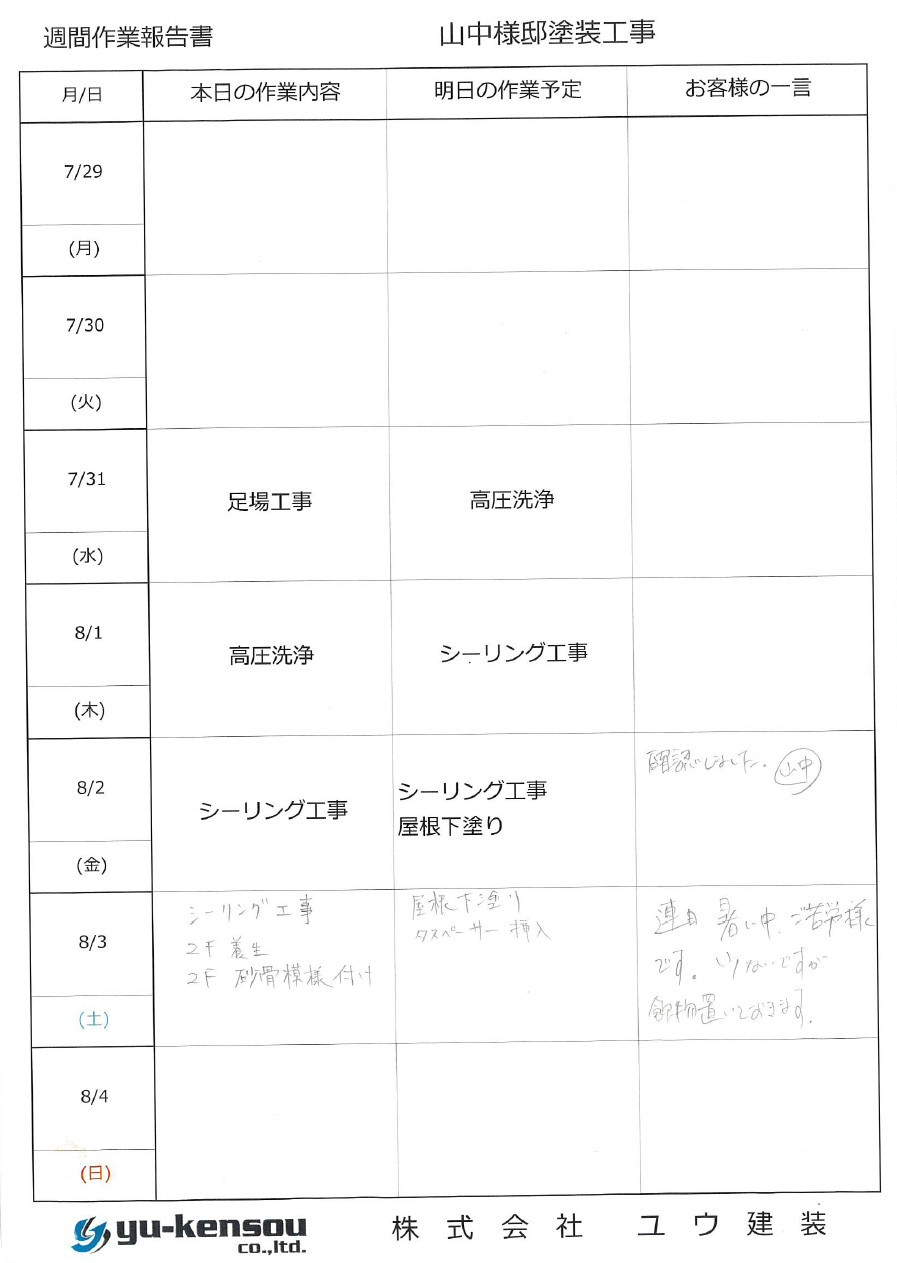 週間作業報告書 山中様邸塗装工事
月/日 本日の作業内容 明日の作業予定 お客様の一言
7/29
(月)
7/30
(火)
7/31 足場工事 高圧洗浄
(水)
8/1 高圧洗浄 シーリング工事
(木)
確認しました。 山中
8/2 シーリング工事 シーリング工事
屋根下塗り
(金)
8/3
(土)
シーリング工事
2F 養生
2F 砂骨模様付け
屋根下塗り
タスペーサー挿入
連日 暑い中、ご苦労様
です。
飲物置いておきます。
8/4
(日)
yu-kensou
co.,ltd.
株式会社 ユウ建装